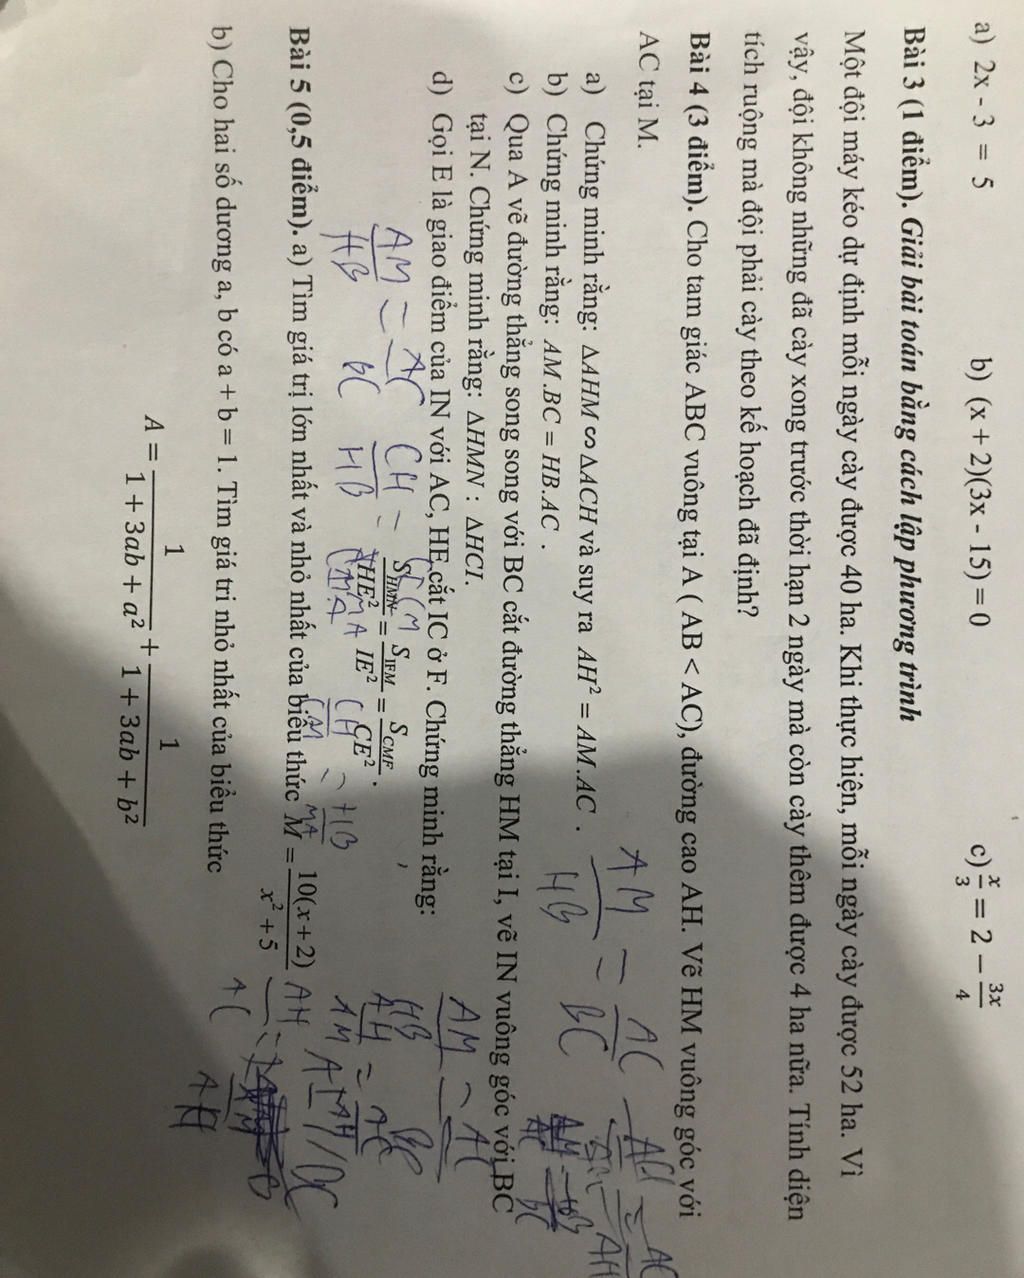 a) 2x - 3 = 5 b) (x + 2)(3x - 15) = 0 c) x/3 = 2 - 3x/4
Bài 3 (1 điểm). Giải bài toán bằng cách lập phương trình
Một đội máy kéo dự định mỗi ngày cày được 40 ha. Khi thực hiện, mỗi ngày cày được 52 ha. Vì
vậy, đội không những đã cày xong trước thời hạn 2 ngày mà còn cày thêm được 4 ha nữa. Tính diện
tích ruộng mà đội phải cày theo kế hoạch đã định?
Bài 4 (3 điểm). Cho tam giác ABC vuông tại A ( AB < AC), đường cao AH. Vẽ HM vuông góc với
AC tại M.
a) Chứng minh rằng: ΔAHM ∽ ΔACH và suy ra AH² = AM.AC .
b) Chứng minh rằng: AM.BC = HB.AC .
c) Qua A vẽ đường thẳng song song với BC cắt đường thẳng HM tại I, vẽ IN vuông góc với BC
tại N. Chứng minh rằng: ΔHMN : ΔHCI.
d) Gọi E là giao điểm của IN với AC, HE cắt IC ở F. Chứng minh rằng:
S_HMN/HE² = S_IFM/IE² = S_CMF/CE² .
AM/HB = AC/BC
AM/HB = AC/BC
CH/HB =
Bài 5 (0,5 điểm). a) Tìm giá trị lớn nhất và nhỏ nhất của biểu thức M = 10(x + 2)/x² + 5
b) Cho hai số dương a, b có a + b = 1. Tìm giá trị nhỏ nhất của biểu thức
A = 1/1 + 3ab + a² + 1/1 + 3ab + b²